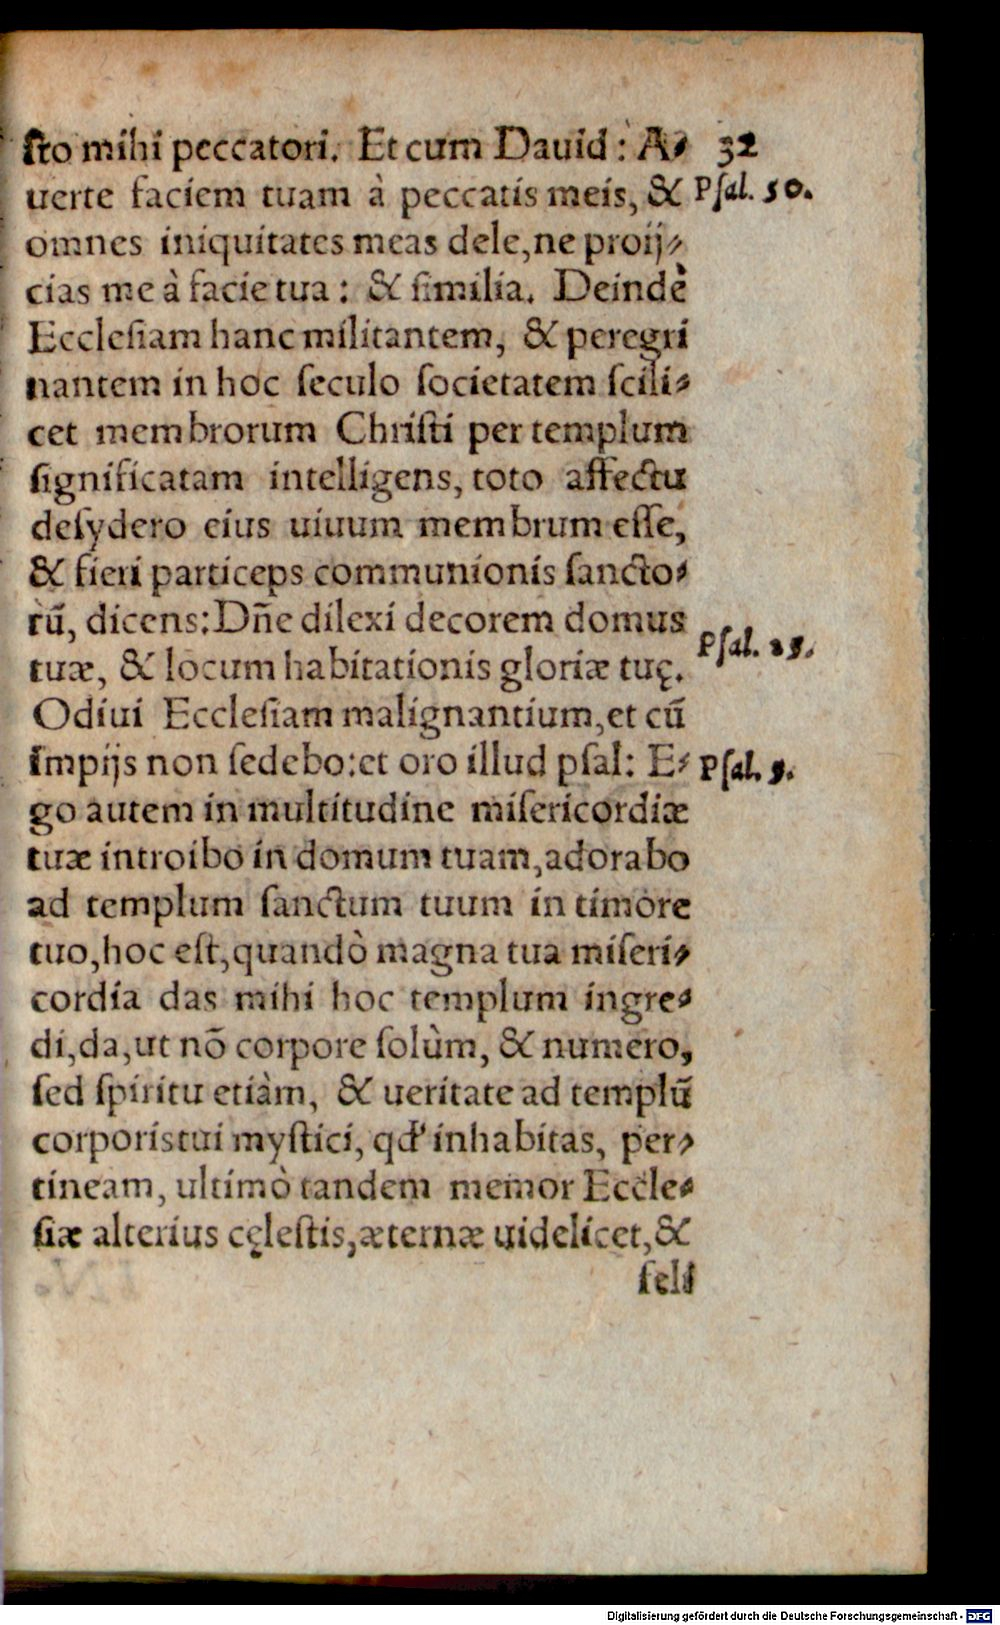 ſto mihi peccatori. Et cum Dauid: A- 32
uerte faciem tuam à peccatis meis, & Pſal. 50.
omnes iniquitates meas dele, ne proij-
cias me à facie tua: & ſimilia. Deindè
Eccleſiam hanc militantem, & peregri
nantem in hoc ſeculo ſocietatem ſcili-
cet membrorum Chriſti per templum
ſignificatam intelligens, toto affectu
deſydero eius uiuum membrum eſſe,
& fieri particeps communionis ſancto-
rũ, dicens: Dñe dilexi decorem domus
tuæ, & locum habitationis gloriæ tuę. Pſal. 25.
Odiui Eccleſiam malignantium, et cũ
impijs non ſedebo: et oro illud pſal: E- Pſal. 5.
go autem in multitudine miſericordiæ
tuæ introibo in domum tuam, adorabo
ad templum ſanctum tuum in timore
tuo, hoc eſt, quandò magna tua miſeri-
cordia das mihi hoc templum ingre-
di, da, ut nõ corpore ſolùm, & numero,
ſed ſpiritu etiàm, & ueritate ad templũ
corporis tui myſtici, qd' inhabitas, per-
tineam, ultimò tandem memor Eccle-
ſiæ alterius cęleſtis, æternæ uidelicet, &
feli
Digitalisierung gefördert durch die Deutsche Forschungsgemeinschaft - DFG